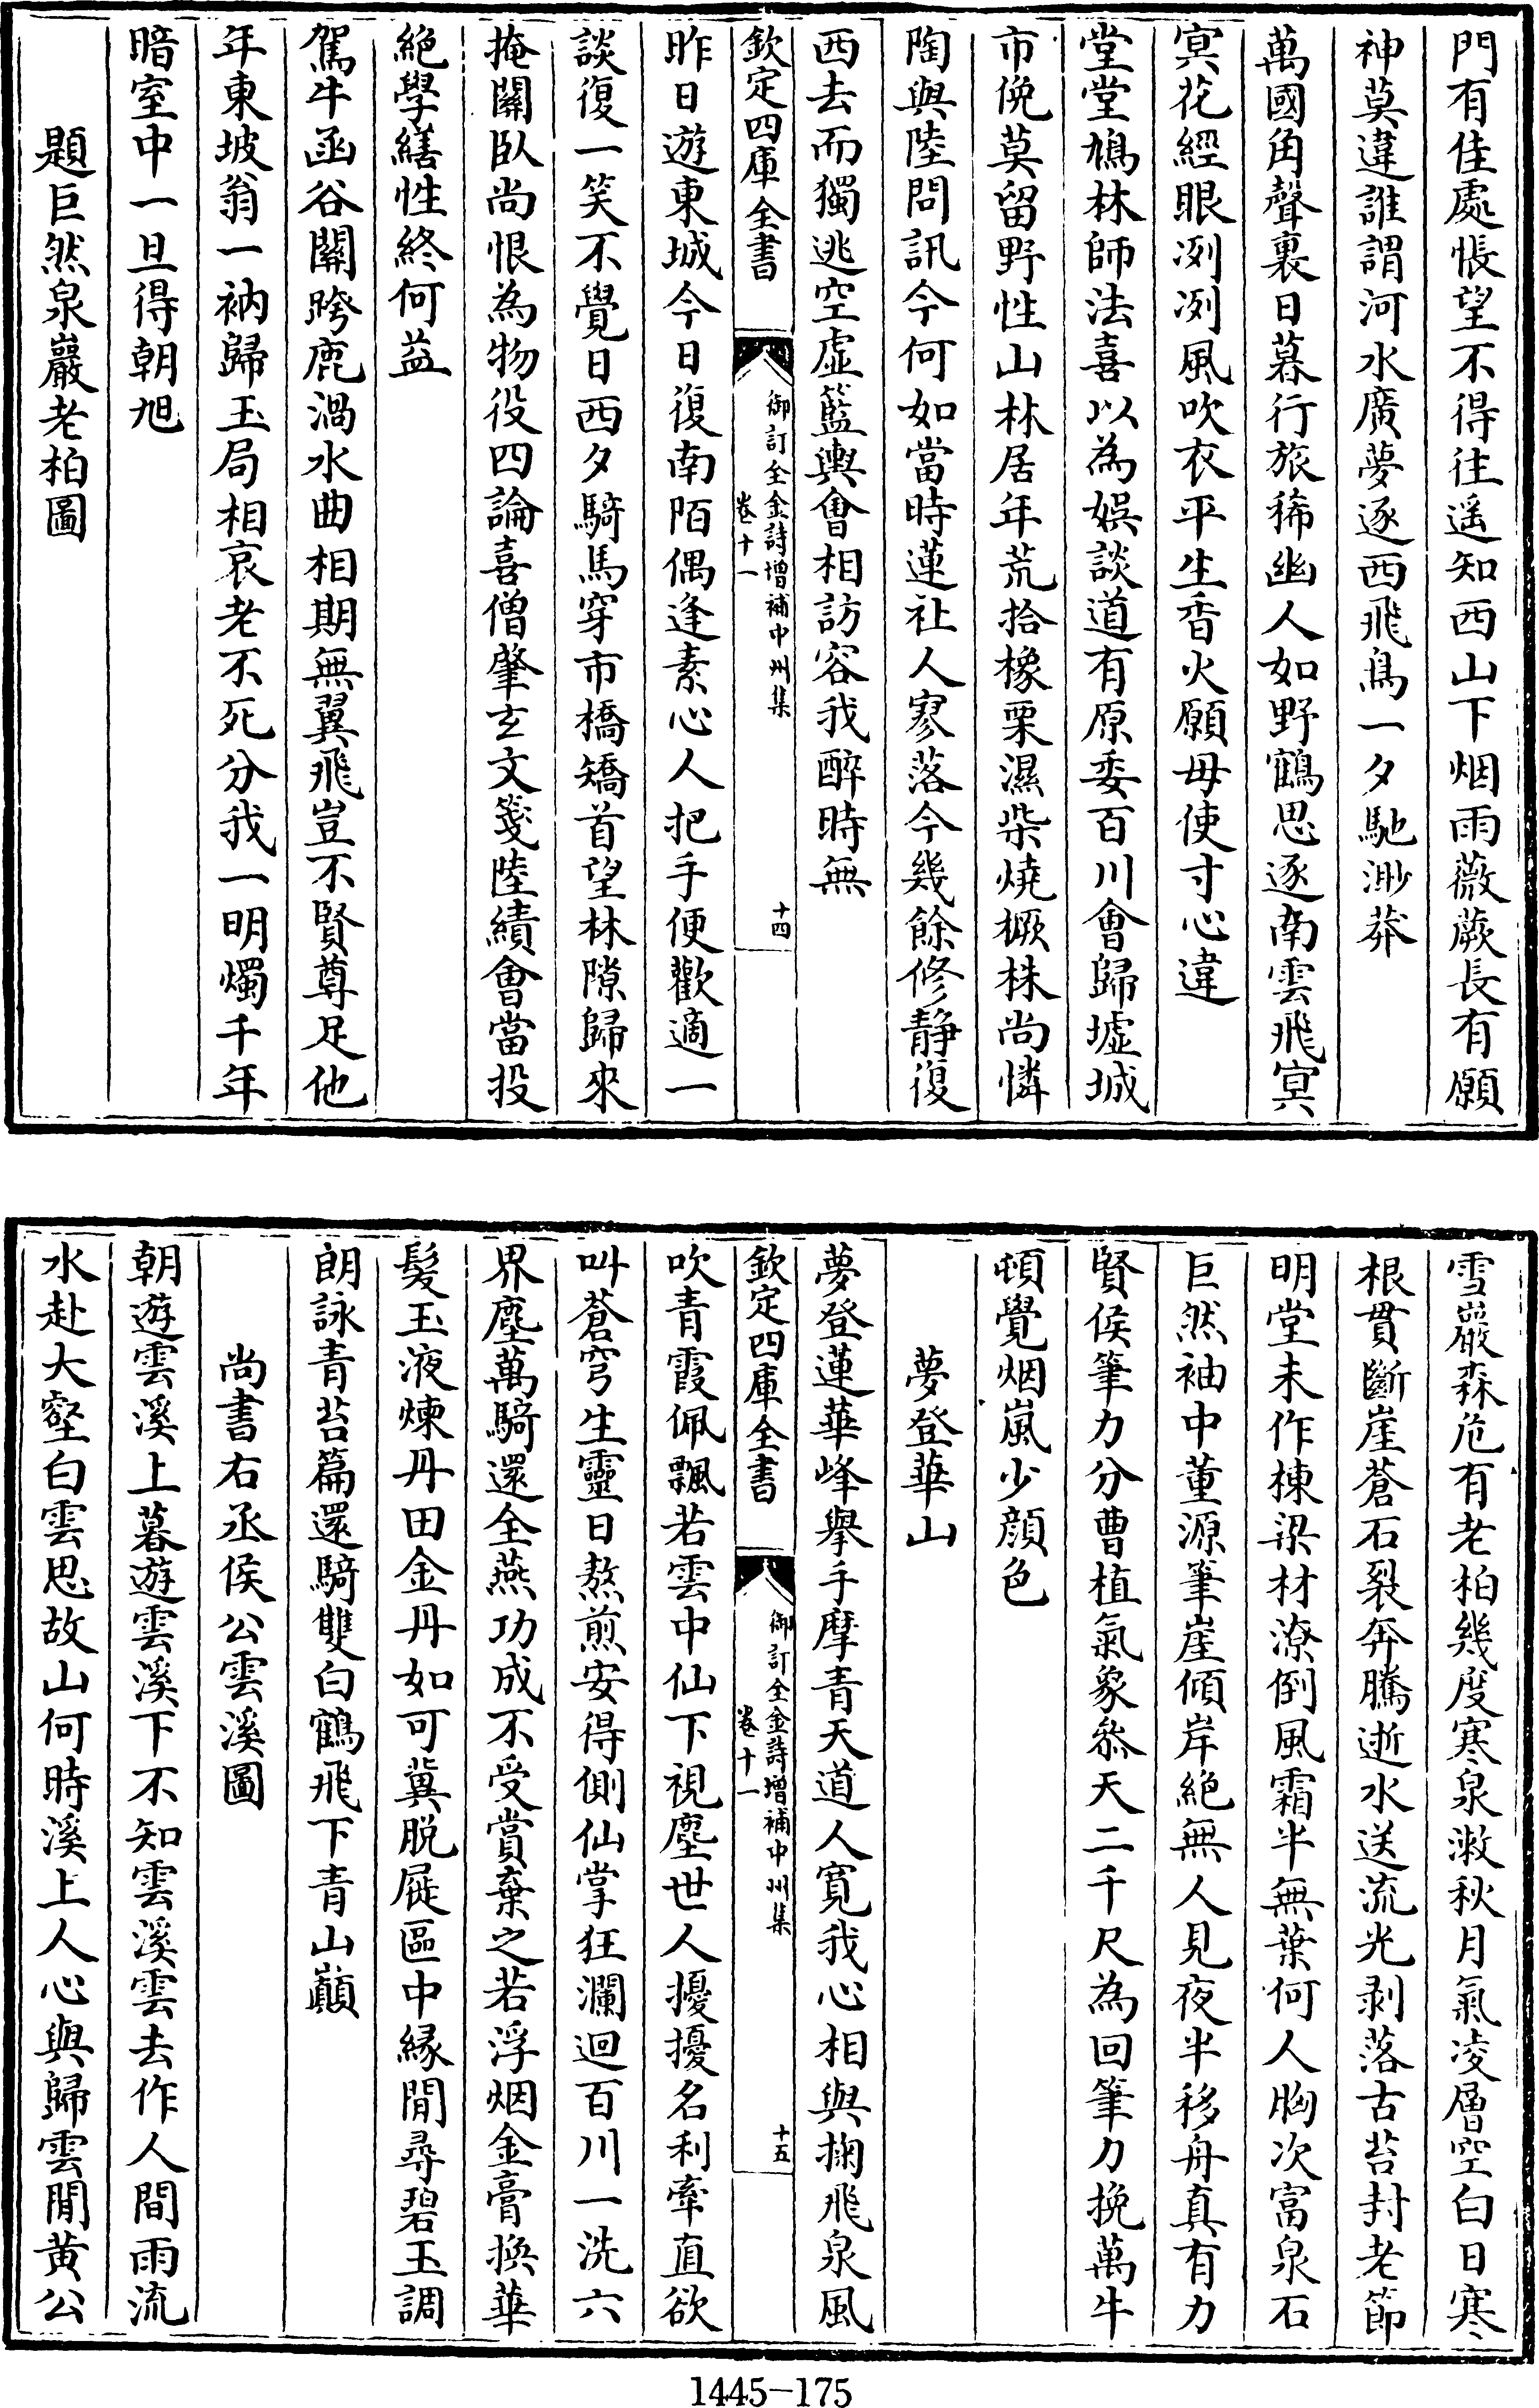 門有佳處悵望不得往遥知西山下烟雨薇蕨長有願
神莫違誰謂河水廣夢逐西飛鳥一夕馳渺莽
萬國角聲裏日暮行旅稀幽人如野鶴思逐南雲飛冥
冥花經眼冽冽風吹衣平生香火願毋使寸心違
堂堂鳩林師法喜以為娯談道有原委百川會歸墟城
市俛莫留野性山林居年荒拾橡栗濕柴燒橛株尚憐
陶與陸問訊今何如當時蓮社人寥落今幾餘修靜復
西去而獨逃空虛籃輿會相訪容我醉時無
欽定四庫全書
御訂全金詩增補中州集
卷十一
十四
昨日遊東城今日復南陌偶逢素心人把手便歡適一
談復一笑不覺日西夕騎馬穿市橋矯首望林隙歸來
掩關臥尚恨為物役四論喜僧肇玄文箋陸績會當投
絕學繕性終何益
駕牛函谷關跨鹿渦水曲相期無翼飛豈不賢尊足他
年東坡翁一衲歸玉局相哀老不死分我一明燭千年
暗室中一旦得朝旭
題巨然泉巖老柏圖
雪巖森危有老柏幾度寒泉漱秋月氣凌層空白日寒
根貫斷崖蒼石裂奔騰逝水送流光剥落古苔封老節
明堂未作棟梁材潦倒風霜半無葉何人胸次富泉石
巨然袖中董源筆崖傾岸絕無人見夜半移舟真有力
賢侯筆力分曹植氣象叅天二千尺為回筆力挽萬牛
頓覺烟嵐少顔色
夢登華山
夢登蓮華峰舉手摩青天道人寛我心相與掬飛泉風
欽定四庫全書
御訂全金詩增補中州集
卷十一
十五
吹青霞佩飄若雲中仙下視塵世人擾擾名利牽直欲
叫蒼穹生靈日熬煎安得側仙掌狂瀾迴百川一洗六
界塵萬騎還全燕功成不受賞棄之若浮烟金膏換華
髮玉液煉丹田金丹如可冀脱屣區中緣閒尋碧玉調
朗詠青苔篇還騎雙白鶴飛下青山巔
尚書右丞侯公雲溪圖
朝遊雲溪上暮遊雲溪下不知雲溪雲去作人間雨流
水赴大壑白雲思故山何時溪上人心與歸雲閒黄公
1445-175